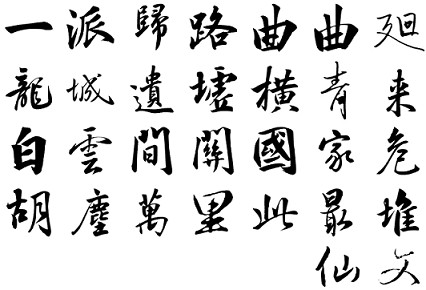 一派歸路曲曲廻
龍城遺墟橫青来
白雲間關國家危
胡塵萬里此最堆
仙文